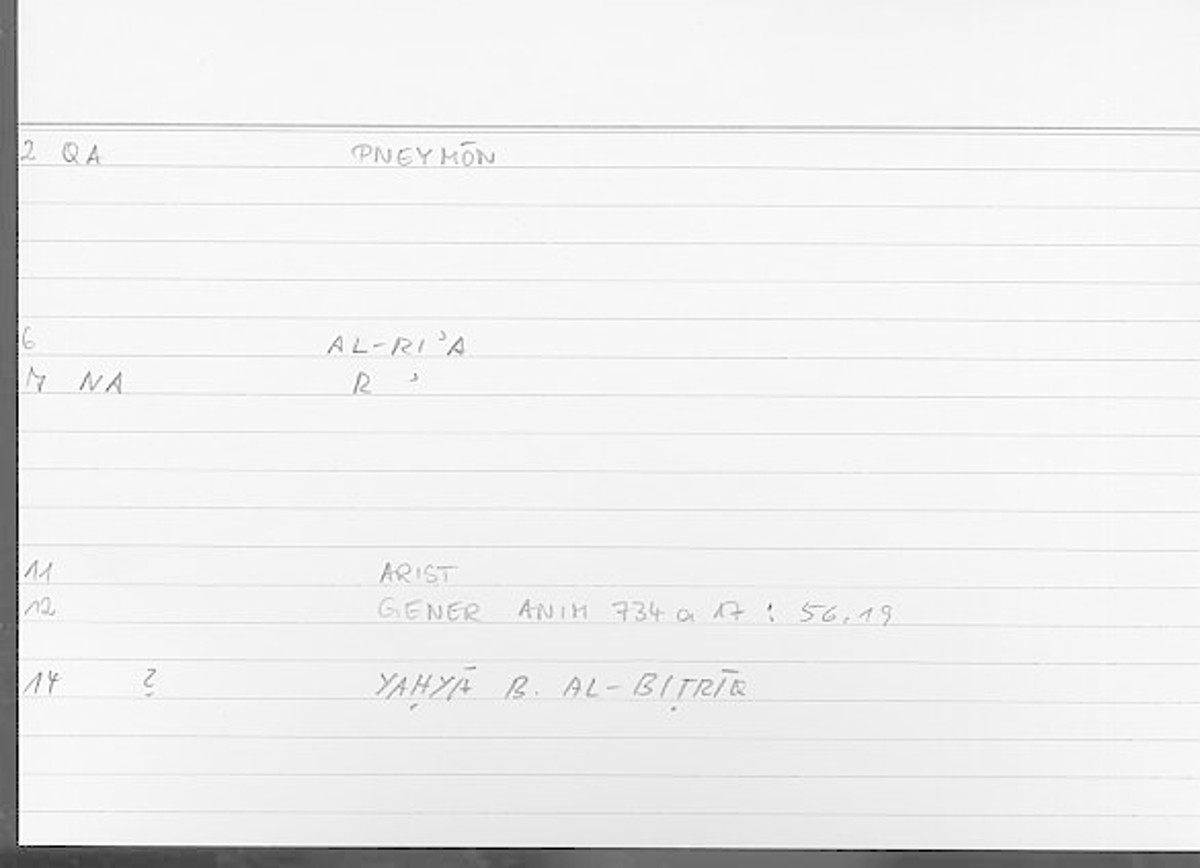 2 QA PNEYMŌN
6 AL-RIʾA
7 NA R ʾ
11 ARIST
12 GENER ANIM 734 a 17 : 56,19
14 ? YAḤYĀ B. AL-BIṬRĪQ